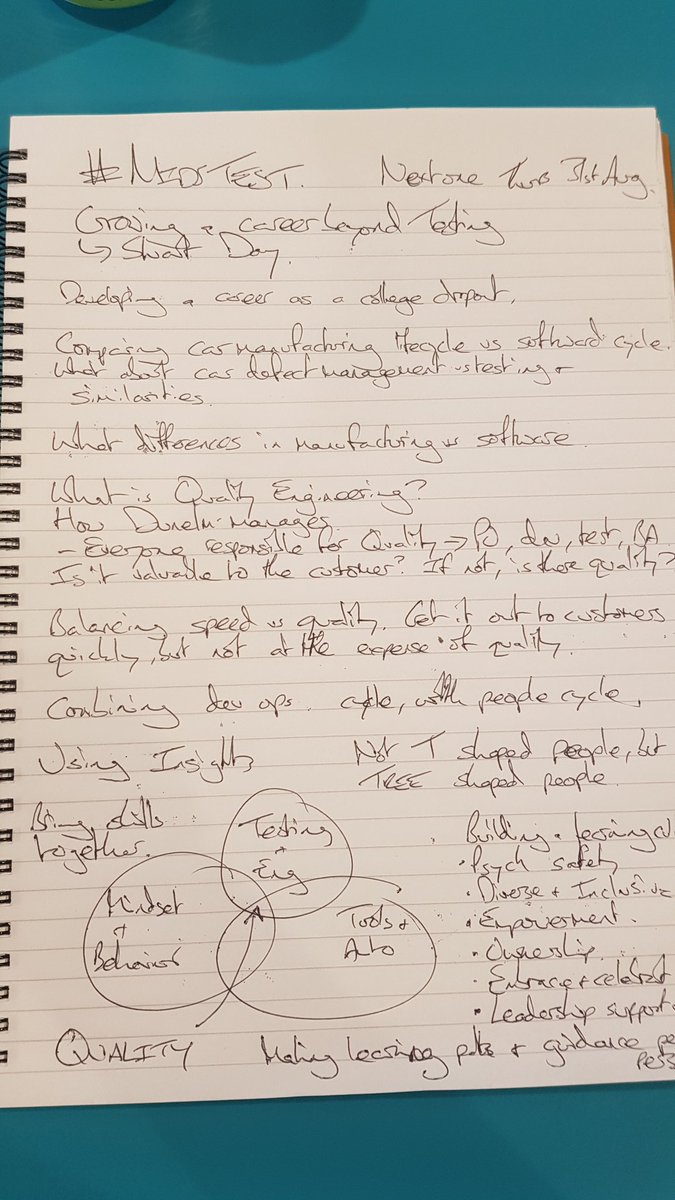 #MIDSTEST. Next one Thurs 31st Aug.
Growing a career beyond Testing
↳ Stuart Day.
Developing a career as a college dropout.
Comparing car manufacturing lifecycle vs software cycle.
What about car defect management vs testing +
similarities.
What differences in manufacturing vs software.
What is Quality Engineering?
How Dunelm manages
- Everyone responsible for Quality → PO, dev, test, BA
Is it valuable to the customer? If not, is there quality?
Balancing speed vs quality. Get it out to customers
quickly, but not at the expense of quality.
Combining dev ops. cycle, with people cycle.
Using Insights
Not T shaped people, but
TREE shaped people.
Bring skills
together.
Testing
+
Eng
Mindset
+
Behavior
Tools +
Auto
QUALITY
Building a learning
• Psych safety
• Diverse + Inclusive
• Empowerment.
• Ownership.
• Embrace + celebrat
• Leadership support
Making learning paths + guidance pe
pers